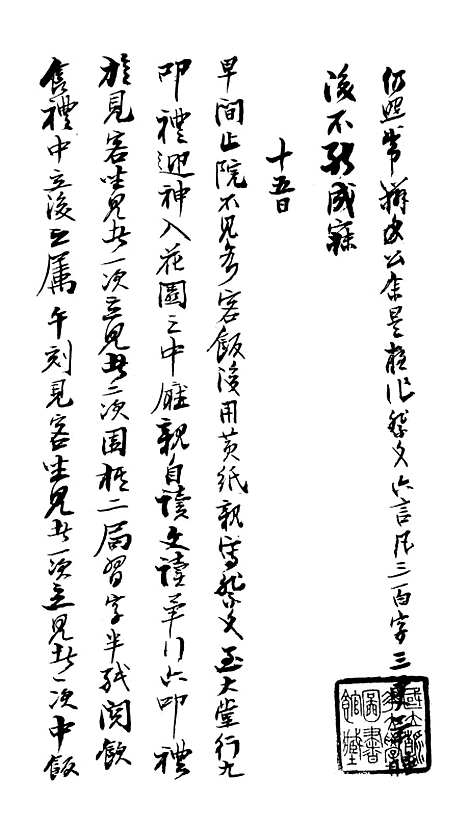 仍照常辦公余是夜作祭文六言凡三百字三
後不能成寐
十五日
早間止院不見各客飯後用黃紙親寫祭文至大堂行九
叩禮迎神入花園之中廳親自讀文讀畢行六叩禮
旋見客坐見者一次立見者二次圍棋二局習字半紙閱飲
食禮中立後之屬午刻見客坐見者一次立見者一次中飯